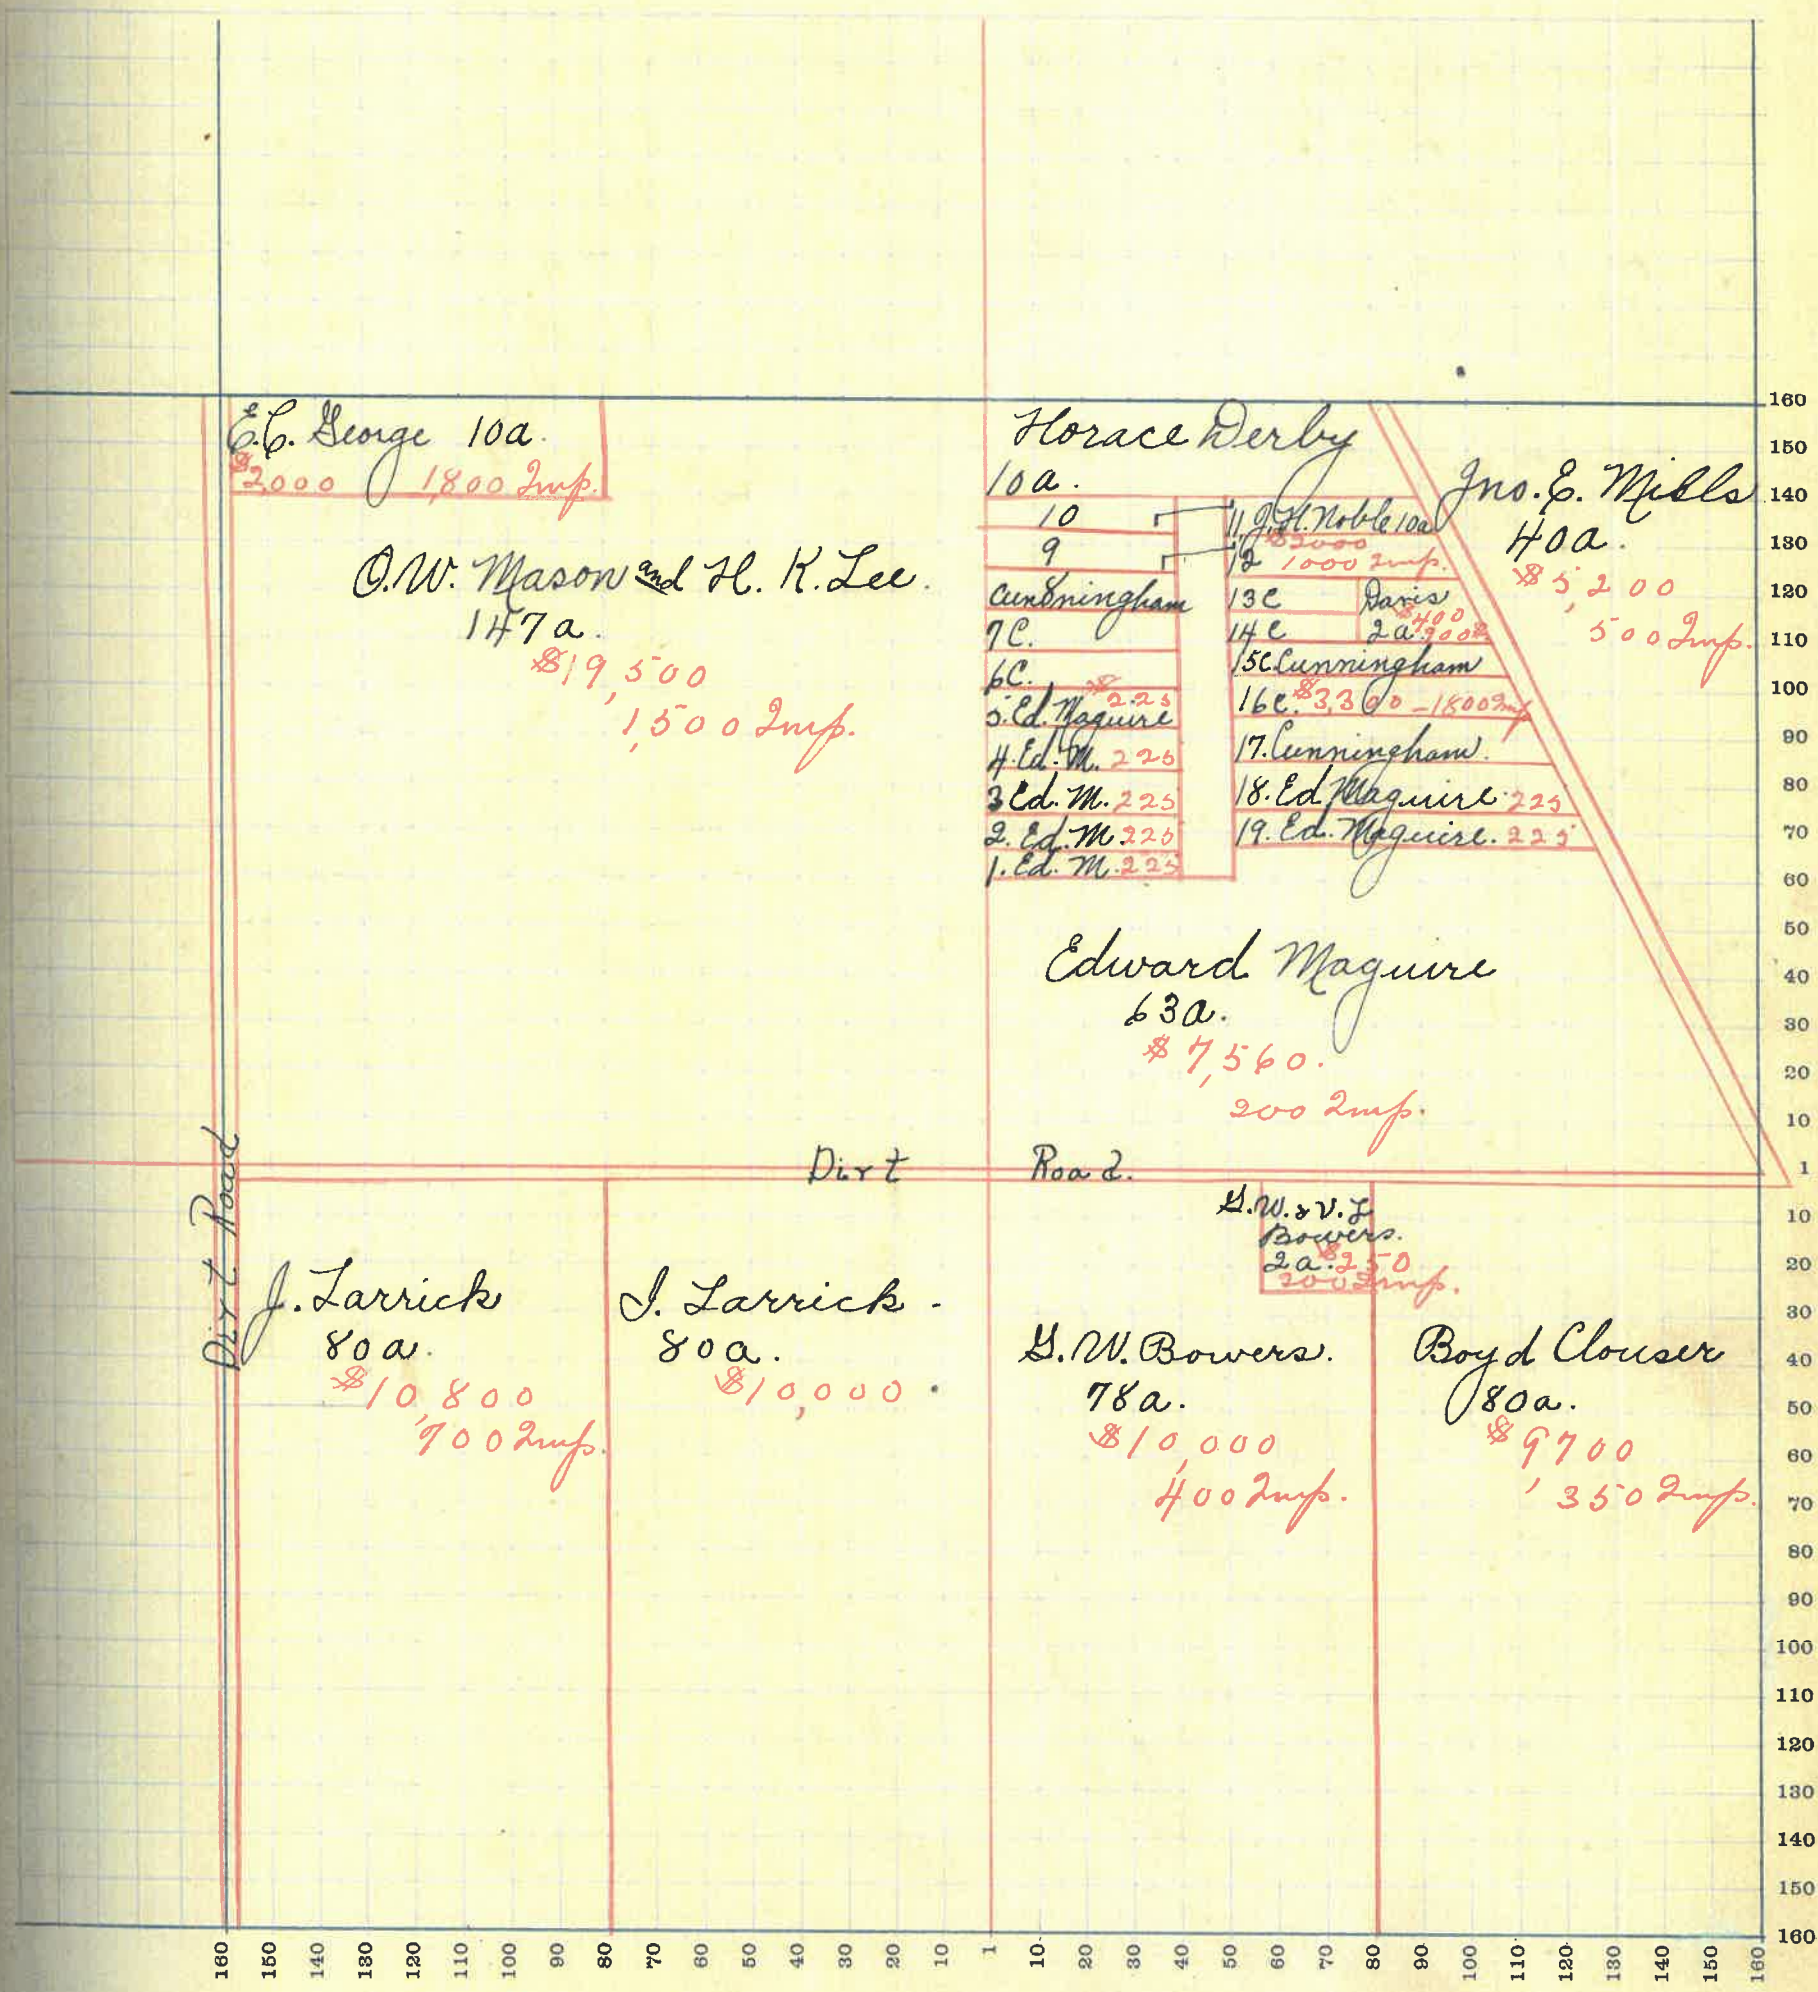 E.C. George 10a.
$2,000 1,800 Imp.
O.W. Mason and H. K. Lee.
147a.
$19,500
1,500 Imp.
Horace Derby
10a.
10
9
8
Cunningham
7C.
6C.
$225
5. Ed. Maguire
4. Ed. M. 225
3 Ed. M. 225
2. Ed. M 225
1. Ed. M. 225
11 J.H. Noble 10a
$2000
12 1000 Imp.
13C
14C
Davis
$400
2a.
15C. Cunningham
16C. $3,300 - 1800 Imp
17. Cunningham.
18. Ed Maguire 225
19. Ed. Maguire. 225
Jno. E. Mills
40a.
$5,200
500 Imp.
Edward Maguire
63a.
$7,560.
200 Imp.
Dirt Road.
Dirt Road
J. Larrick
80a.
$10,800
700 Imp.
I. Larrick.
80a.
$10,000.
G.W. & V. L
Bowers.
2a. $250
200 Imp.
G.W. Bowers.
78a.
$10,000
400 Imp.
Boyd Clouser
80a.
$9,700
350 Imp.
160
150
140
130
120
110
100
90
80
70
60
50
40
30
20
10
1
10
20
30
40
50
60
70
80
90
100
110
120
130
140
150
160
160 150 140 130 120 110 100 90 80 70 60 50 40 30 20 10 1 10 20 30 40 50 60 70 80 90 100 110 120 130 140 150 160